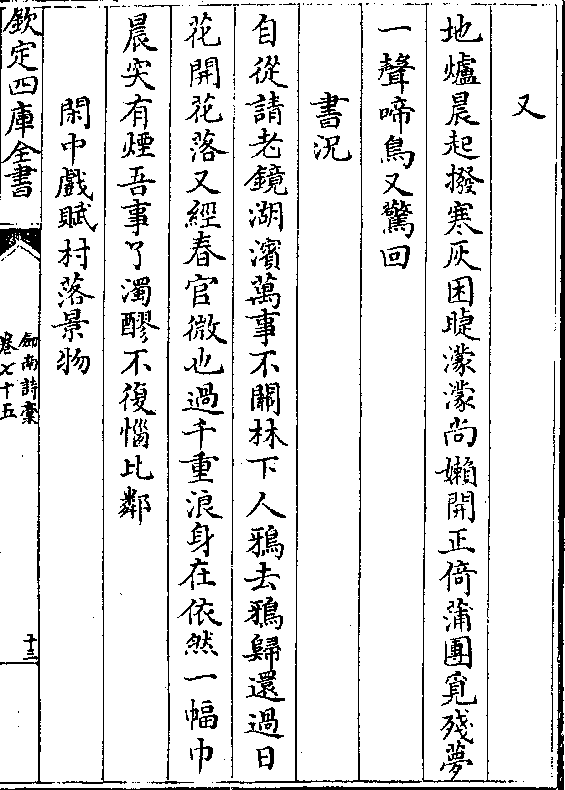 又
地爐晨起撥寒灰困睫濛濛尚嬾開正倚蒲團覓殘夢
一聲啼鳥又驚回
書況
自從請老鏡湖濱萬事不關林下人鴉去鴉歸還過日
花開花落又經春官微也過千重浪身在依然一幅巾
晨突有煙吾事了濁醪不復惱比鄰
閑中戲賦村落景物
欽定四庫全書
劍南詩稾
卷七十五
十三